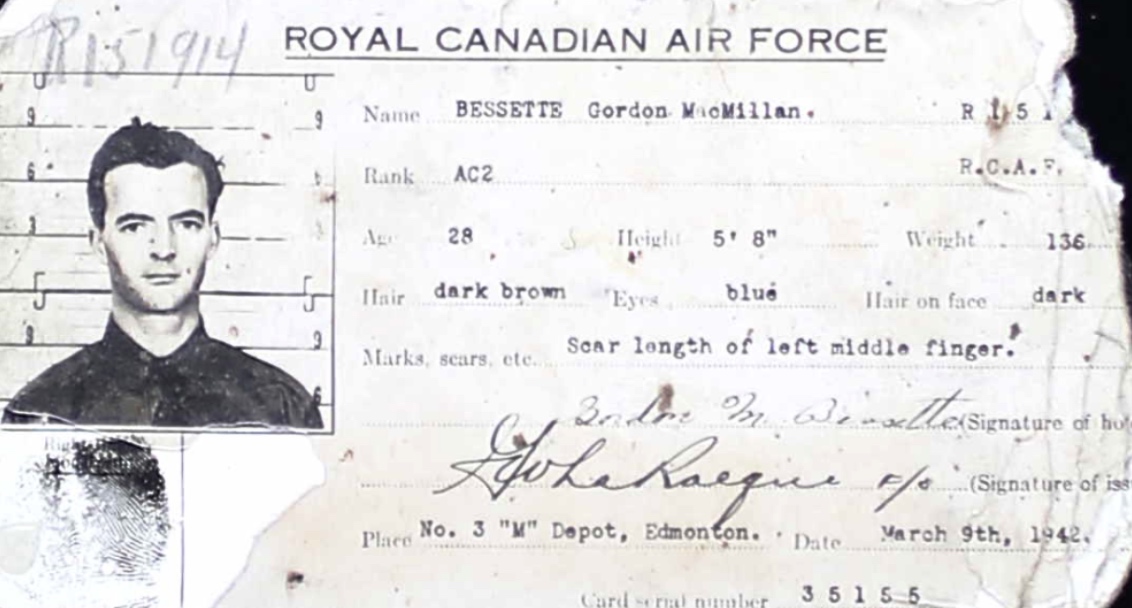 R151914
ROYAL CANADIAN AIR FORCE
Name BESSETTE Gordon MacMillan. R 1 5 1
Rank AC2 R.C.A.F.
Age 28 Height 5' 8" Weight 136
Hair dark brown Eyes blue Hair on face dark
Marks, scars, etc. Scar length of left middle finger.
Gordon M. Bessette (Signature of ho
F/O (Signature of iss
Place No. 3 "M" Depot, Edmonton. Date March 9th, 1942.
Card serial number 35155
9 9
6 6
3
5 5
9 9
6
Right